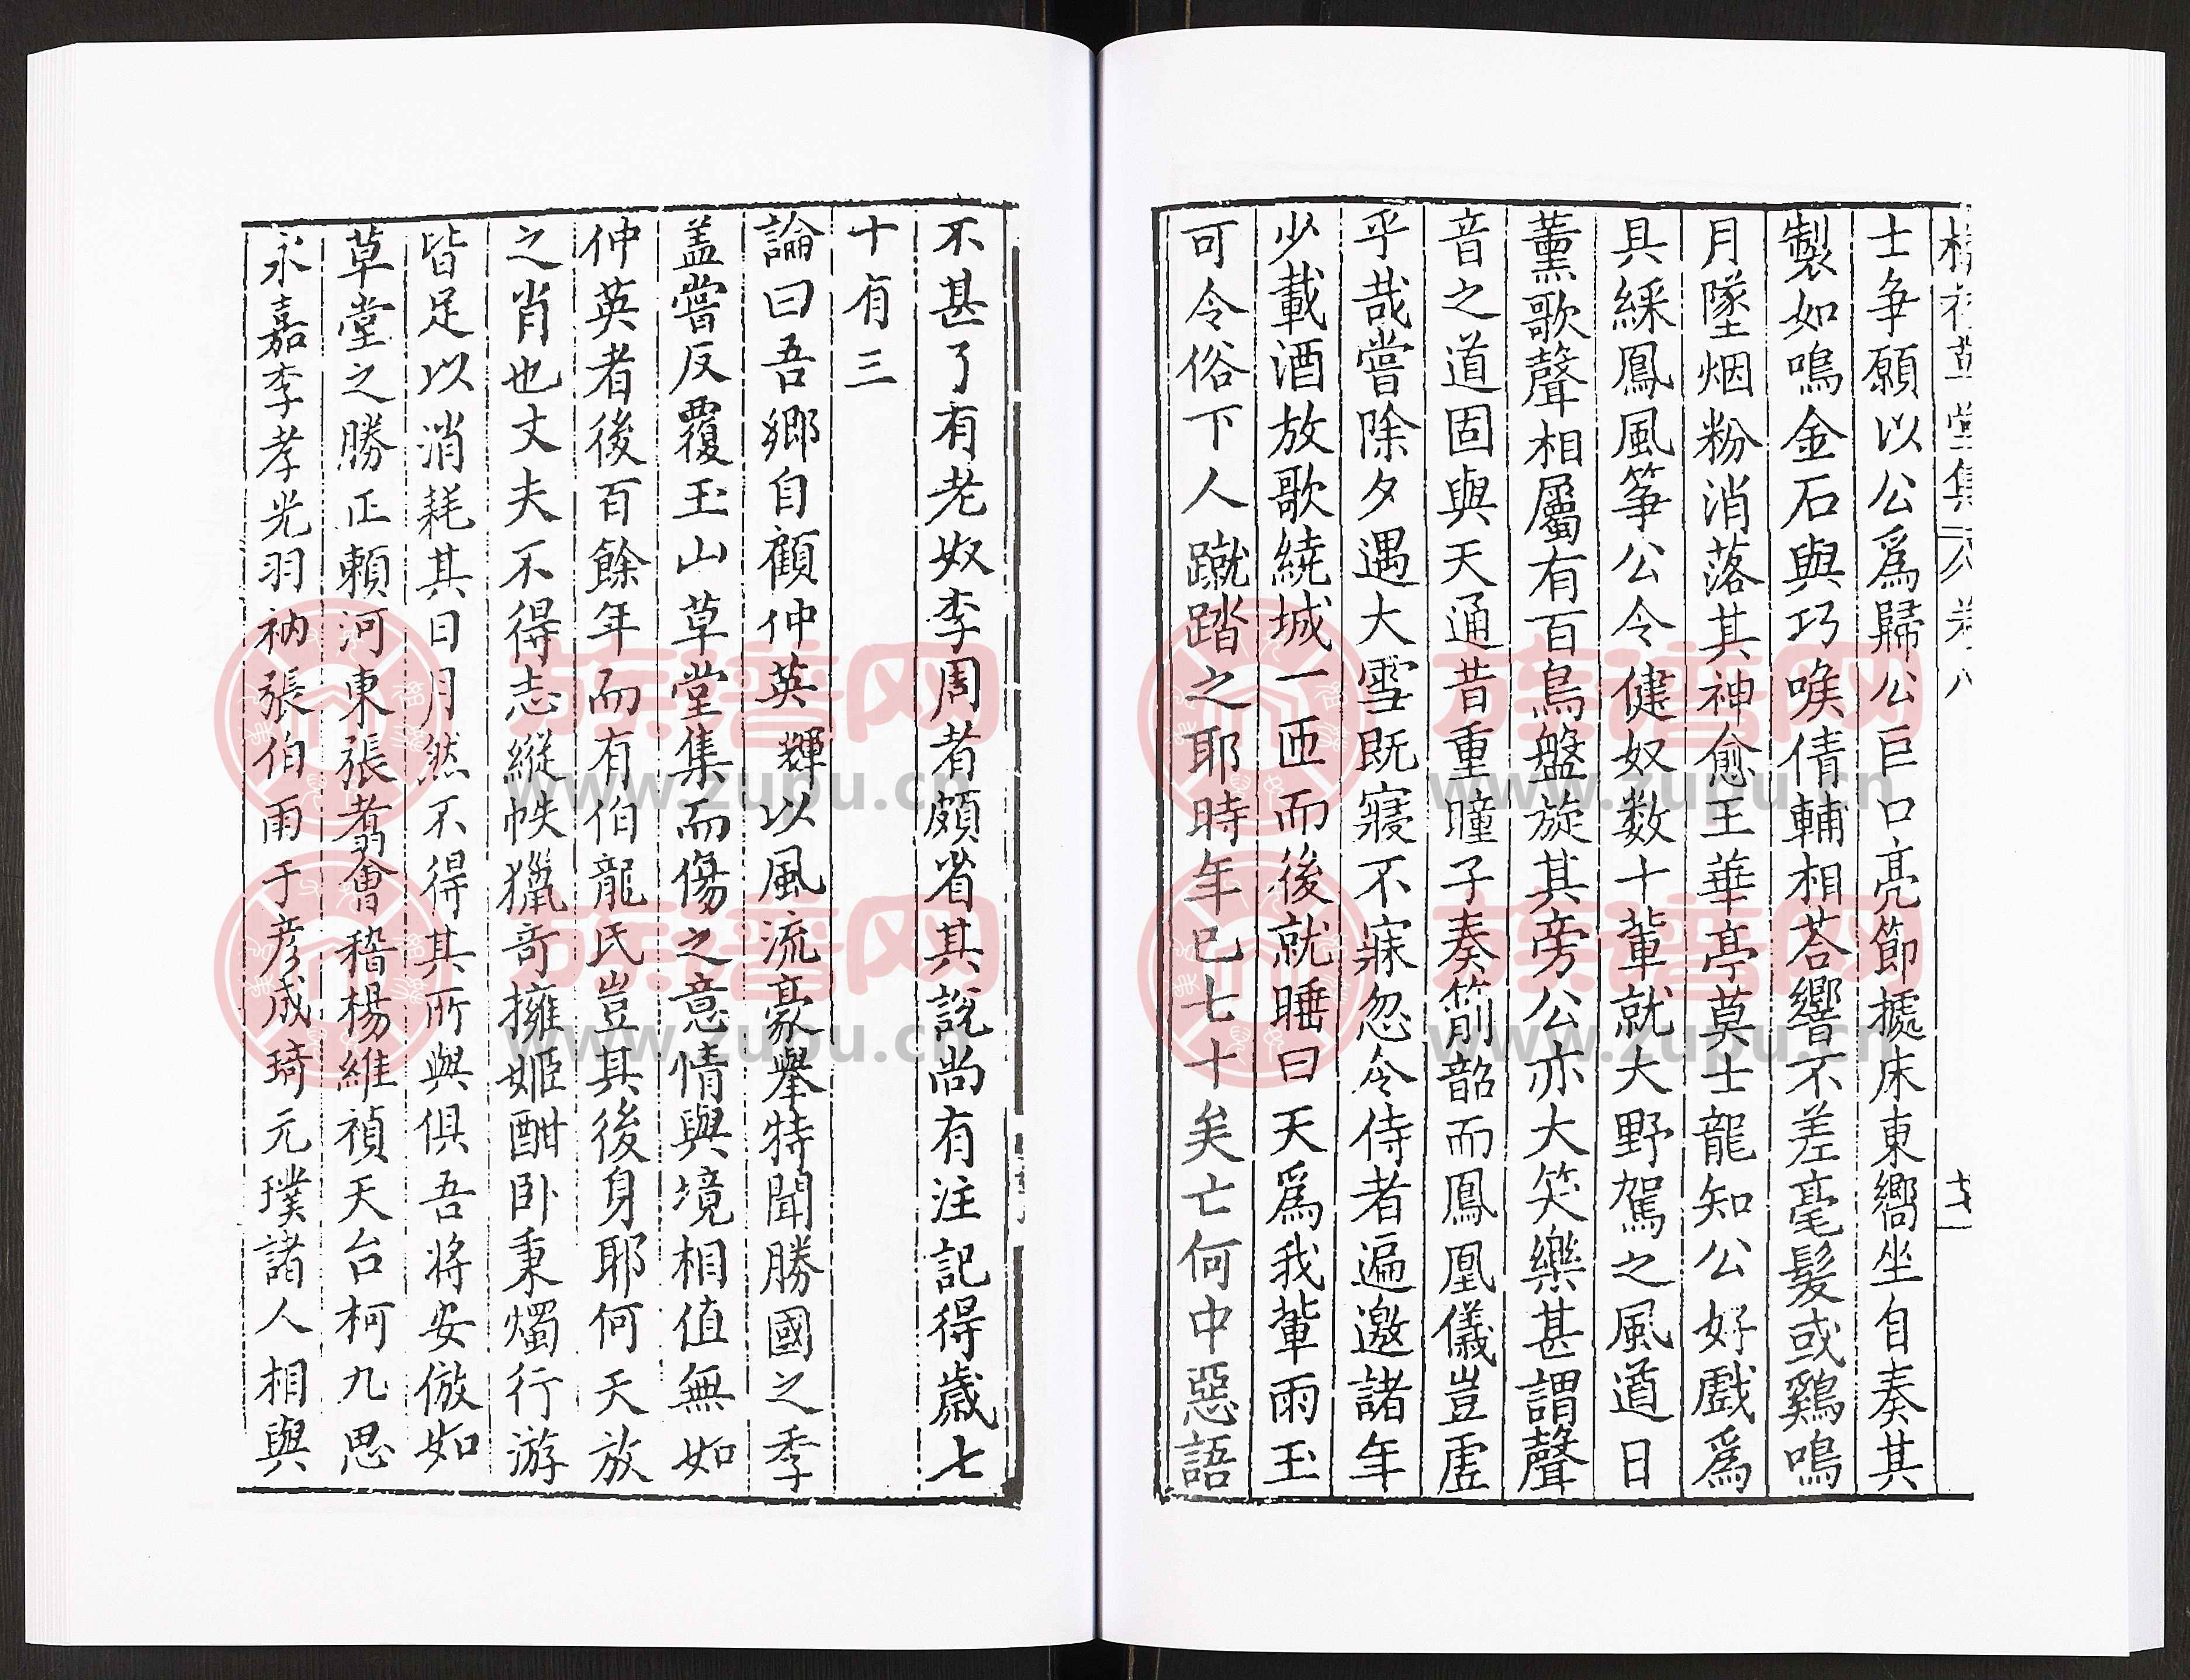 草堂集 卷八
士争願以公爲歸公巨口亮節據床東嚮坐自奏其
製如鳴金石與巧喉倩輔相荅響不差毫髮或鷄鳴
月墜烟粉消落其神愈王華亭莫士龍知公好戲爲
具綵鳳風筝公令健奴数十輩就大野駕之風道日
薰歌聲相屬有百鳥盤旋其旁公亦大笑樂甚謂聲
音之道固與天通昔重瞳子奏箾韶而鳳凰儀豈虗
乎哉嘗除夕遇大雪既寢不寐忽令侍者遍邀諸年
少載酒放歌繞城一匝而後就睡曰天爲我輩雨玉
可令俗下人蹴踏之耶時年巳七十矣亡何中惡語
不甚了有老奴李周者頗省其說尚有注記得歲七
十有三
論曰吾鄉自顧仲英輝以風流豪舉特聞勝國之季
盖嘗反覆玉山草堂集而傷之意情與境相值無如
仲英者後百餘年而有伯龍氏豈其後身耶何天放
之肖也丈夫不得志縱帙獵奇擁姬酣卧秉燭行游
皆足以消耗其日月然不得其所與俱吾将安倣如
草堂之勝正賴河東張翥會稽楊維禎天台柯九思
永嘉李孝光羽衲張伯雨于彦成琦元璞諸人相與
族谱网
www.zupu.cn
族谱网
www.zupu.cn
族谱网
www.zupu.cn
族谱网
www.zupu.cn